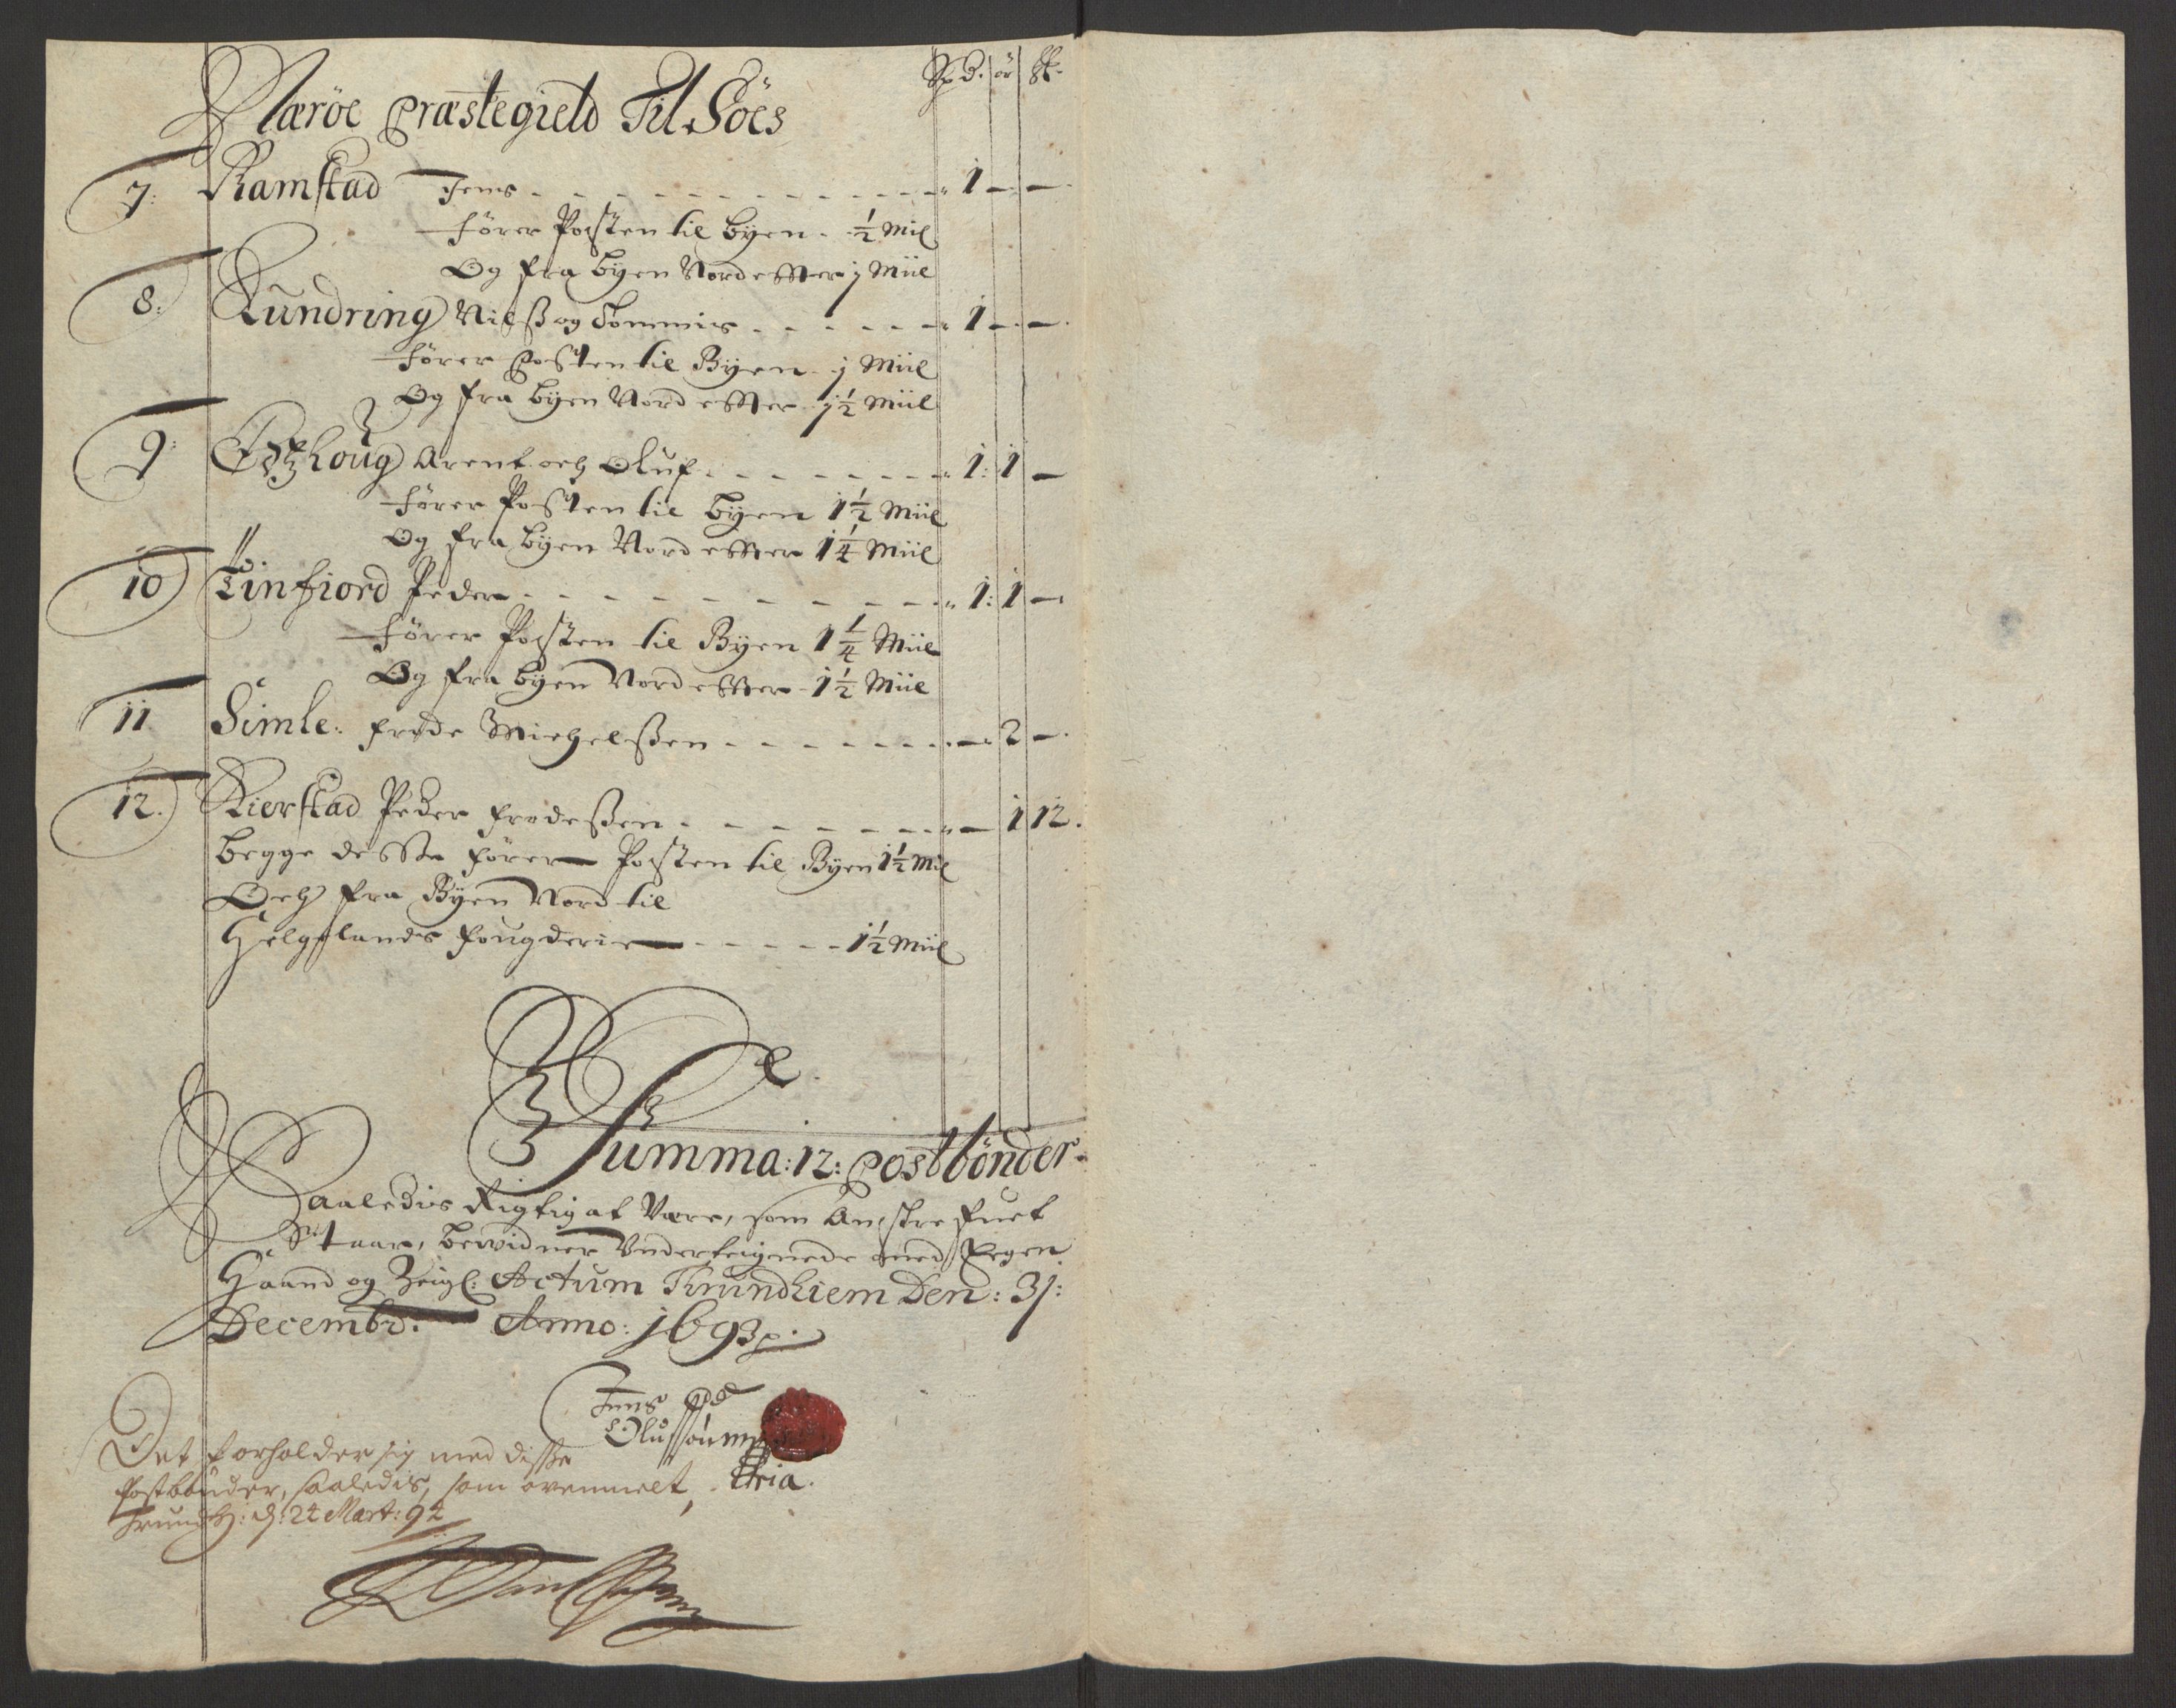 Spd. ør ff.
Nærøe Præstegield Til Søes
7: Ramstad Jens - - - 1 - -
fører Posten til byen - ½ Miil
Og fra byen Nord effter j Miil
8: Rundring Nilß og Tommis - - - 1 - -
fører Posten til Byen j Miil
Og fra byen Nord effter j½ Miil
9: Arent och Oluf - - - 1: 1 -
fører Posten til byen 1½ Miil
Og fra byen Nord effter 1¼ Miil
10 Finfiord Peder - - - 1: 1 -
fører Posten til Byen 1¼ Miil
Og fra byen Nord effter - 1½ Miil
11. Simle: frode Michelßen - - - - 2 -
12. Kierstad Peder frodeßen - - - - 1 12.
begge desse fører Posten til Byen 1½ Miil
Och fra Byen Nord til
Helgelands fougderie - - - 1½ Miil
Summa: 12: Postbønder.
Saaledis Rigtig at Være, som Anføret
Staar, bewidner Underteignede med Eegen
Haand og Zeigl: Actum Trundhiem Den: 31:
Decembr: Anno: 1693 p.
Jens
Olussøn mp
Det forholder sig med disse
Postbønder, saaledis, som ovenmelt,
Trundh: d: 24 Mart: 94